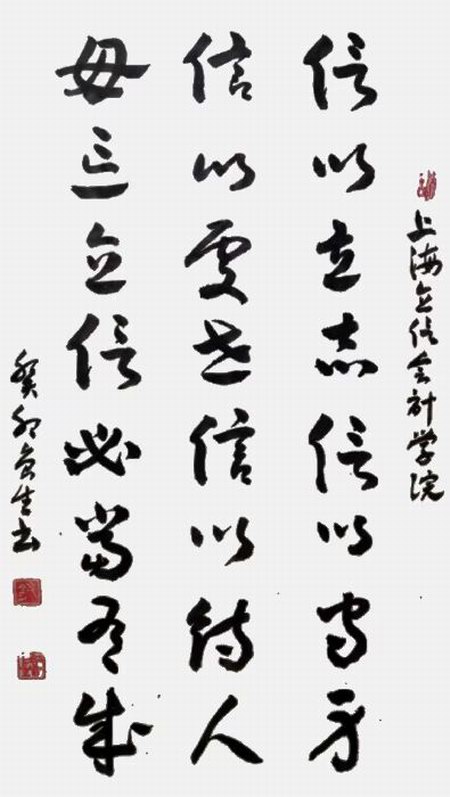 上海立信会計学院
信以立志信以守身
信以處世信以待人
毋忘立信必當有成
癸卯生书